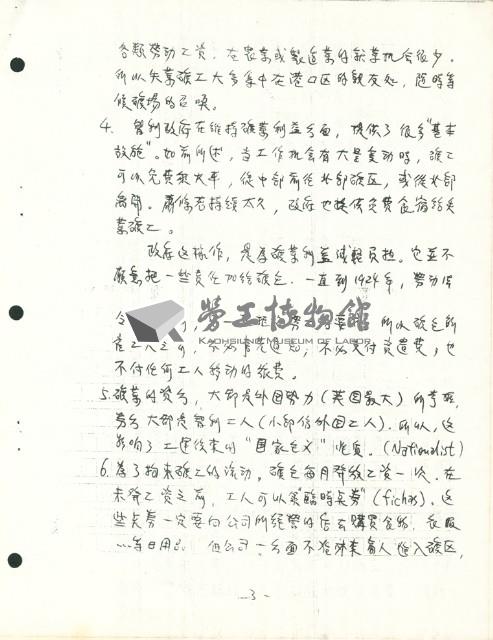 各類勞動工資。在農業或製造業的就業机会很少。
所以失業礦工大多集中在港口区的親友处，随時等
候礦場的召喚。
4. 智利政府在維持礦業利益方面，提供了很多"基本
設施"。如前所述，当工作机会有大量变动時，礦工
可以免費乘火車，從中部前往北部礦区，或從北部
離開。蕭條若持續太久，政府也提供免費食宿給失
業礦工。
政府这樣作，是為礦業利益減輕負担。也並不
願意把一些責任加給礦主。一直到1924年，勞动法
令 所以礦主所
雇工人 不必事先通知，不必支付資遣費，也
不付任何工人移动的旅費。
5. 礦業的資方，大部是外国势力（英国最大）所掌握，
勞方大部是智利工人（小部份外国工人）。所以，这
影响了工運後来的"国家主义"性質。(Nationalist)
6. 為了拘束礦工的流动，礦主每月發放工資一次。在
未發工資之前，工人可以領"臨時卡券"(fichas)。这
些卡券一定要向公司所經營的店去購買食物，衣服
……等日用品。但公司一方面不准外来商人進入礦区，
勞工博物館
KAOHSIUNG MUSEUM OF LABOR
-3-